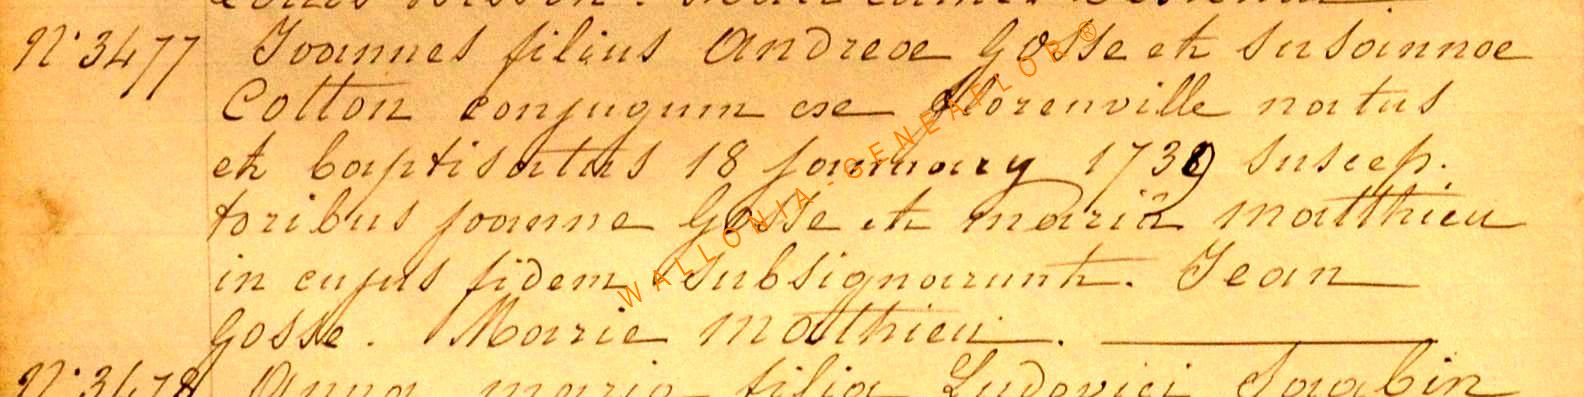 N° 3477 Joannes filius Andreae Gosse et Susannae
Cotton conjugum ex Florenville natus
et baptisatus 18 January 1739 suscep.
toribus joanne Gosse et mariâ Matthieu
in cujus fidem subsignarunt. Jean
Gosse. Marie Matthieu.
N° 3478 Anna maria filia Ludovici
WALLONIA-GENEAFLOR ®